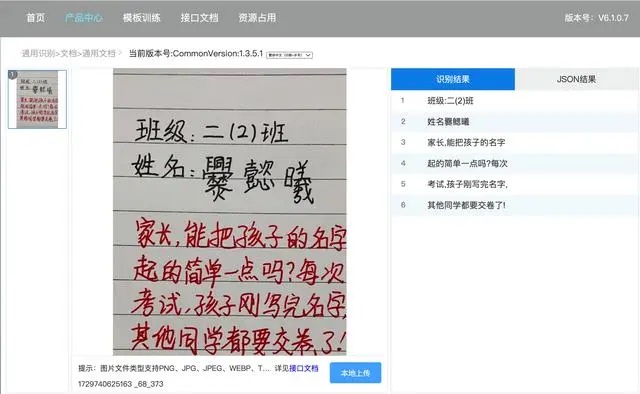 首页 产品中心 模板训练 接口文档 资源占用 版本号: V6.1.0.7
通用识别>文档>通用文档> 当前版本号:CommonVersion:1.3.5.1
1
班级:二(2)班
姓名:爨懿曦
家长,能把孩子的名字
起的简单一点吗?每次
考试,孩子刚写完名字,
其他同学都要交卷了!
提示: 图片文件类型支持PNG、JPG、JPEG、WEBP、T... 详见接口文档
1729740625163 _68_373
本地上传
识别结果 JSON结果
1 班级:二(2)班
2 姓名爨鳃曦
3 家长,能把孩子的名字
4 起的简单一点吗?每次
5 考试,孩子刚写完名字,
6 其他同学都要交卷了!